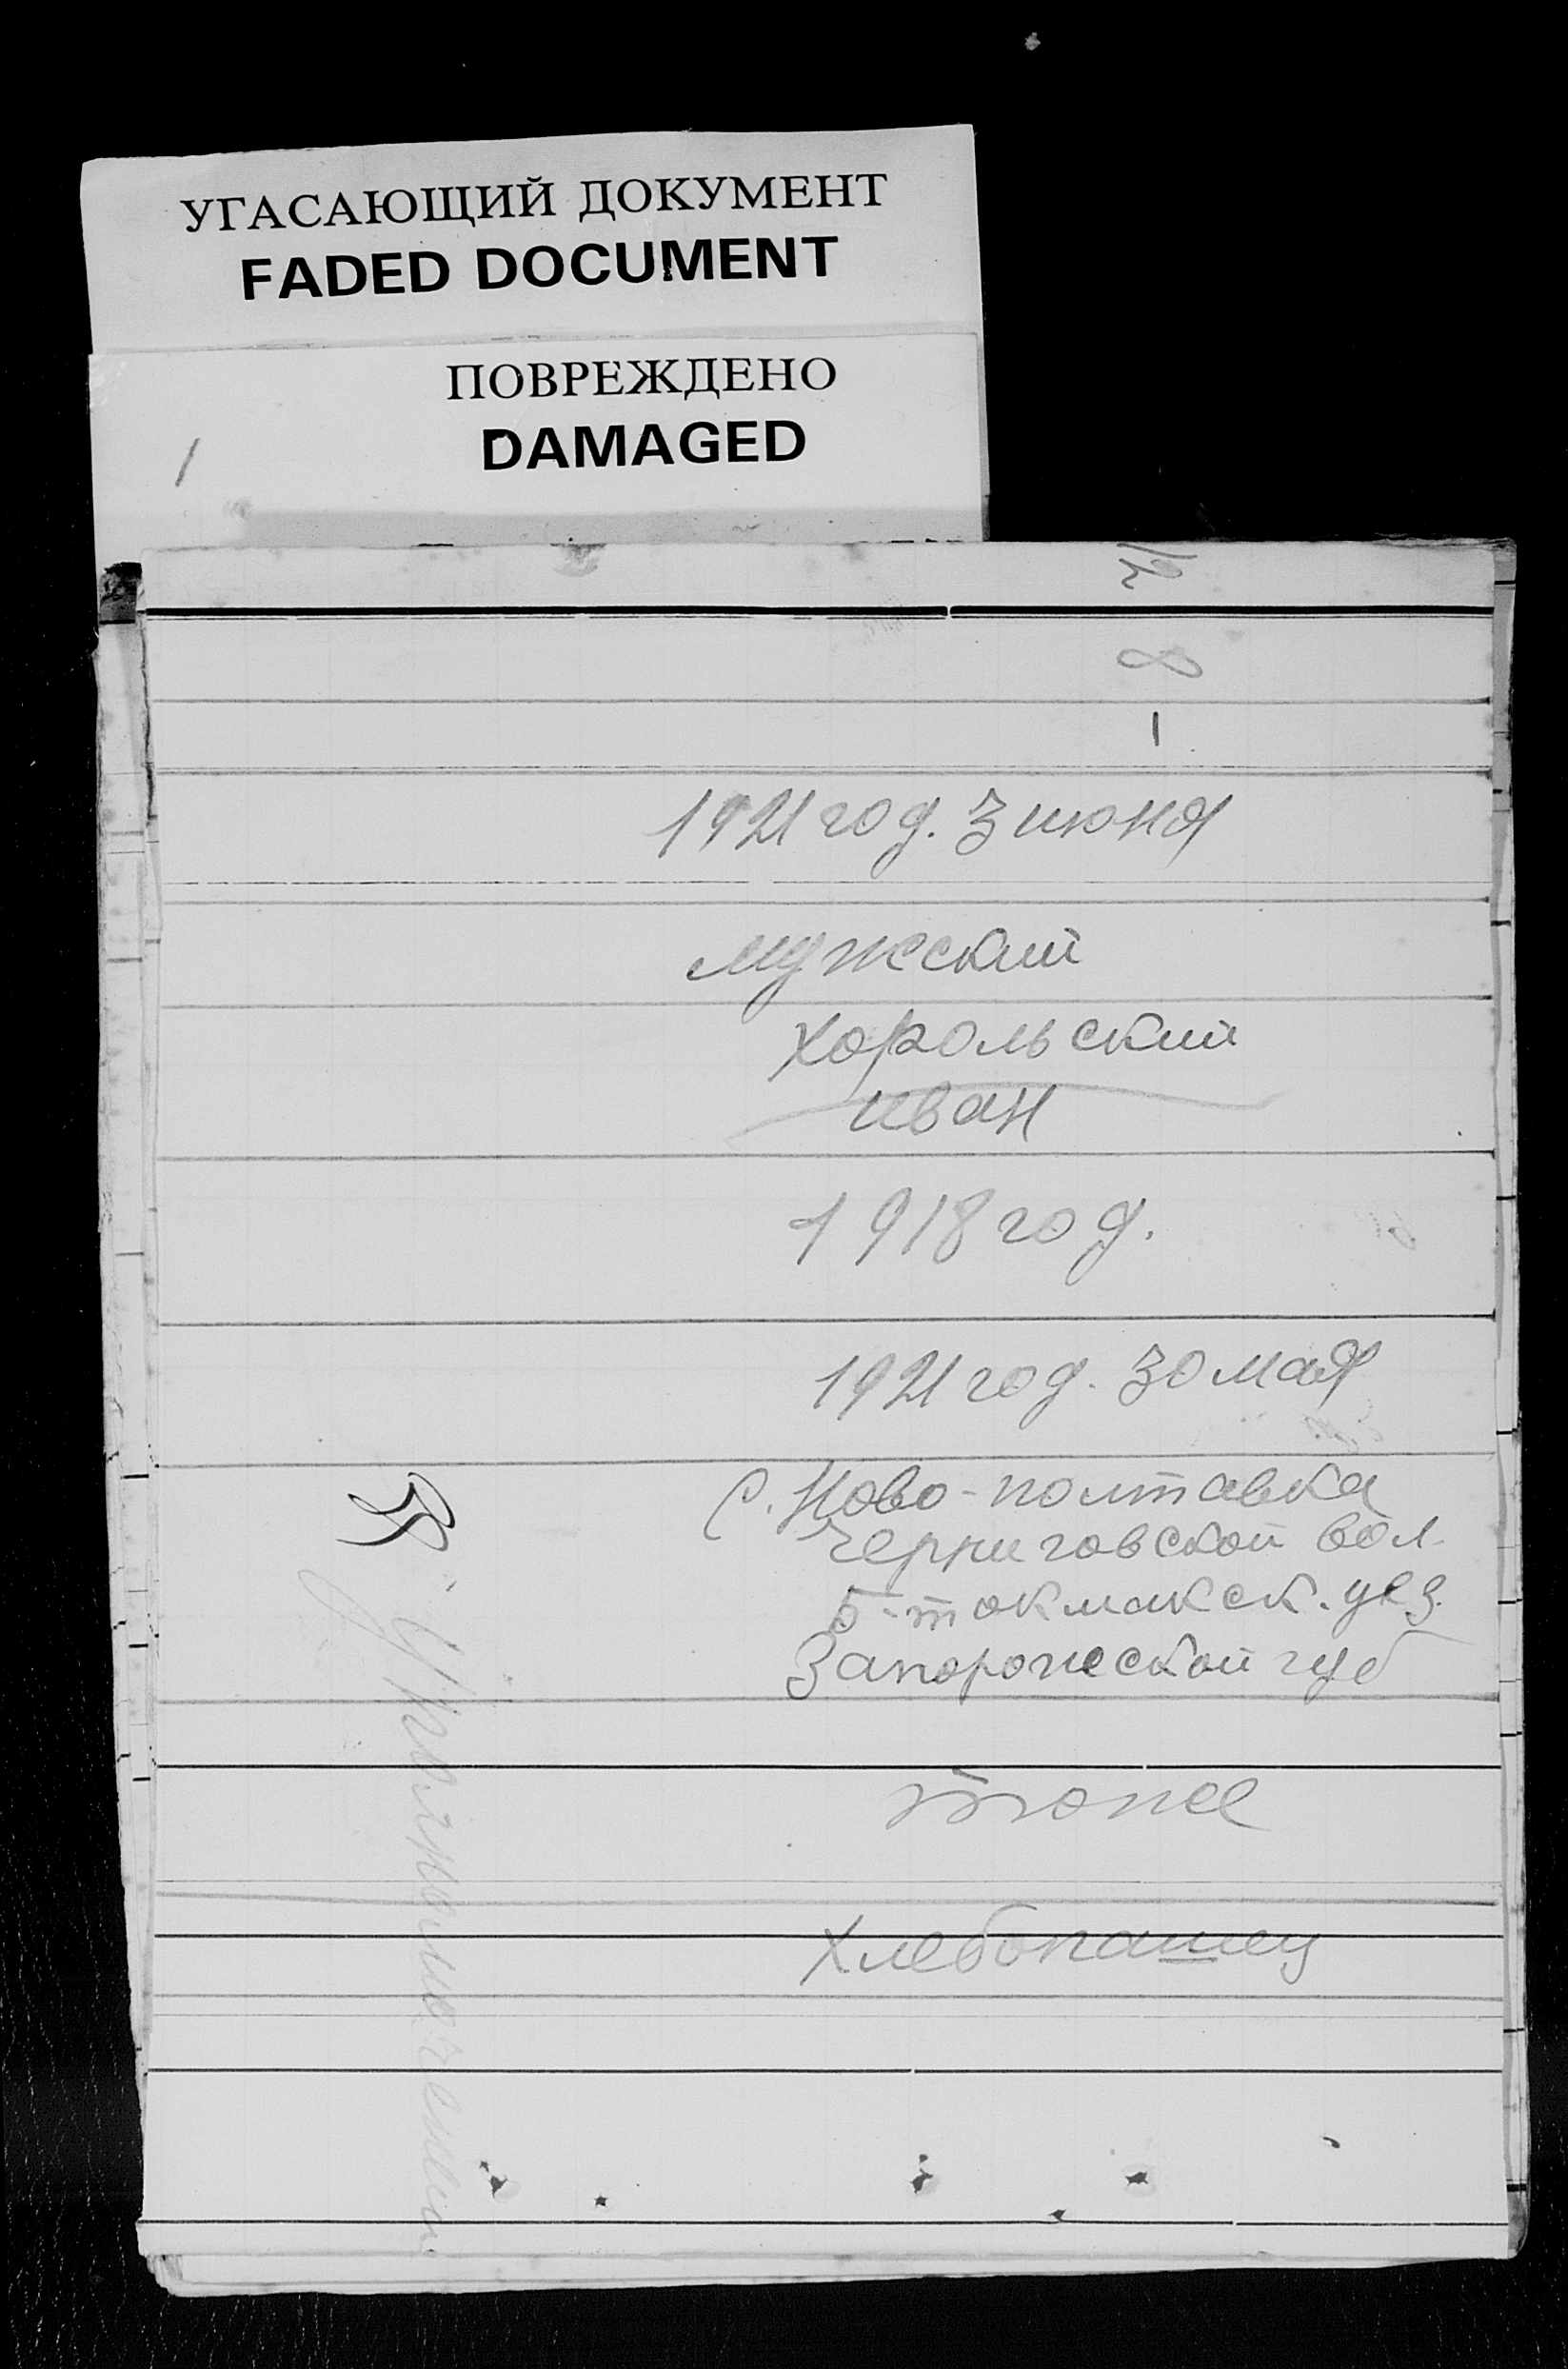 УГАСАЮЩИЙ ДОКУМЕНТ
FADED DOCUMENT
ПОВРЕЖДЕНО
DAMAGED
1
8
1
1921 год. 3 июня
мужский
Хорольский
иван
1918 год.
1921 год. 30 мая
с. Ново-полтавка
Черниговской вол.
Б-токмакск. уез.
Запорожской губ
тоже
хлебопашец